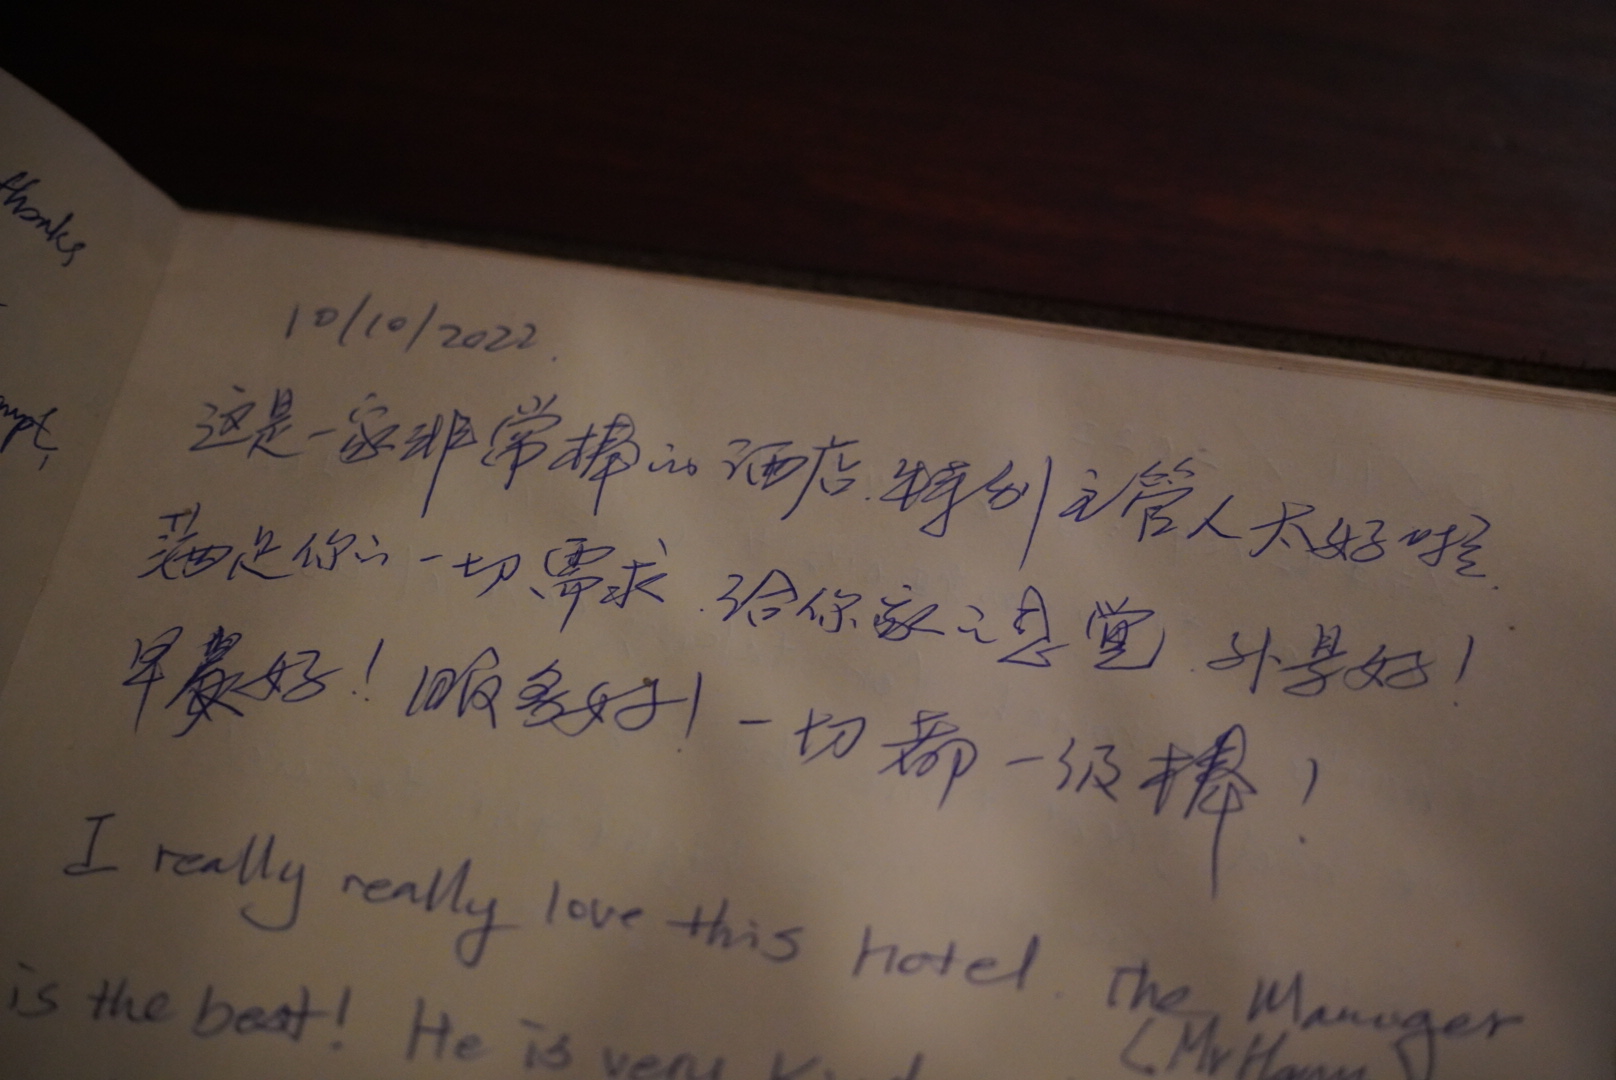 thanks
10/10/2022.
这是一家非常棒的酒店.特别主管人太好啦.
满足你的一切需求.给你家之感觉.外景好!
早餐好!服务好!一切都一级棒!
I really really love this Hotel. The Manager
is the best! He is very